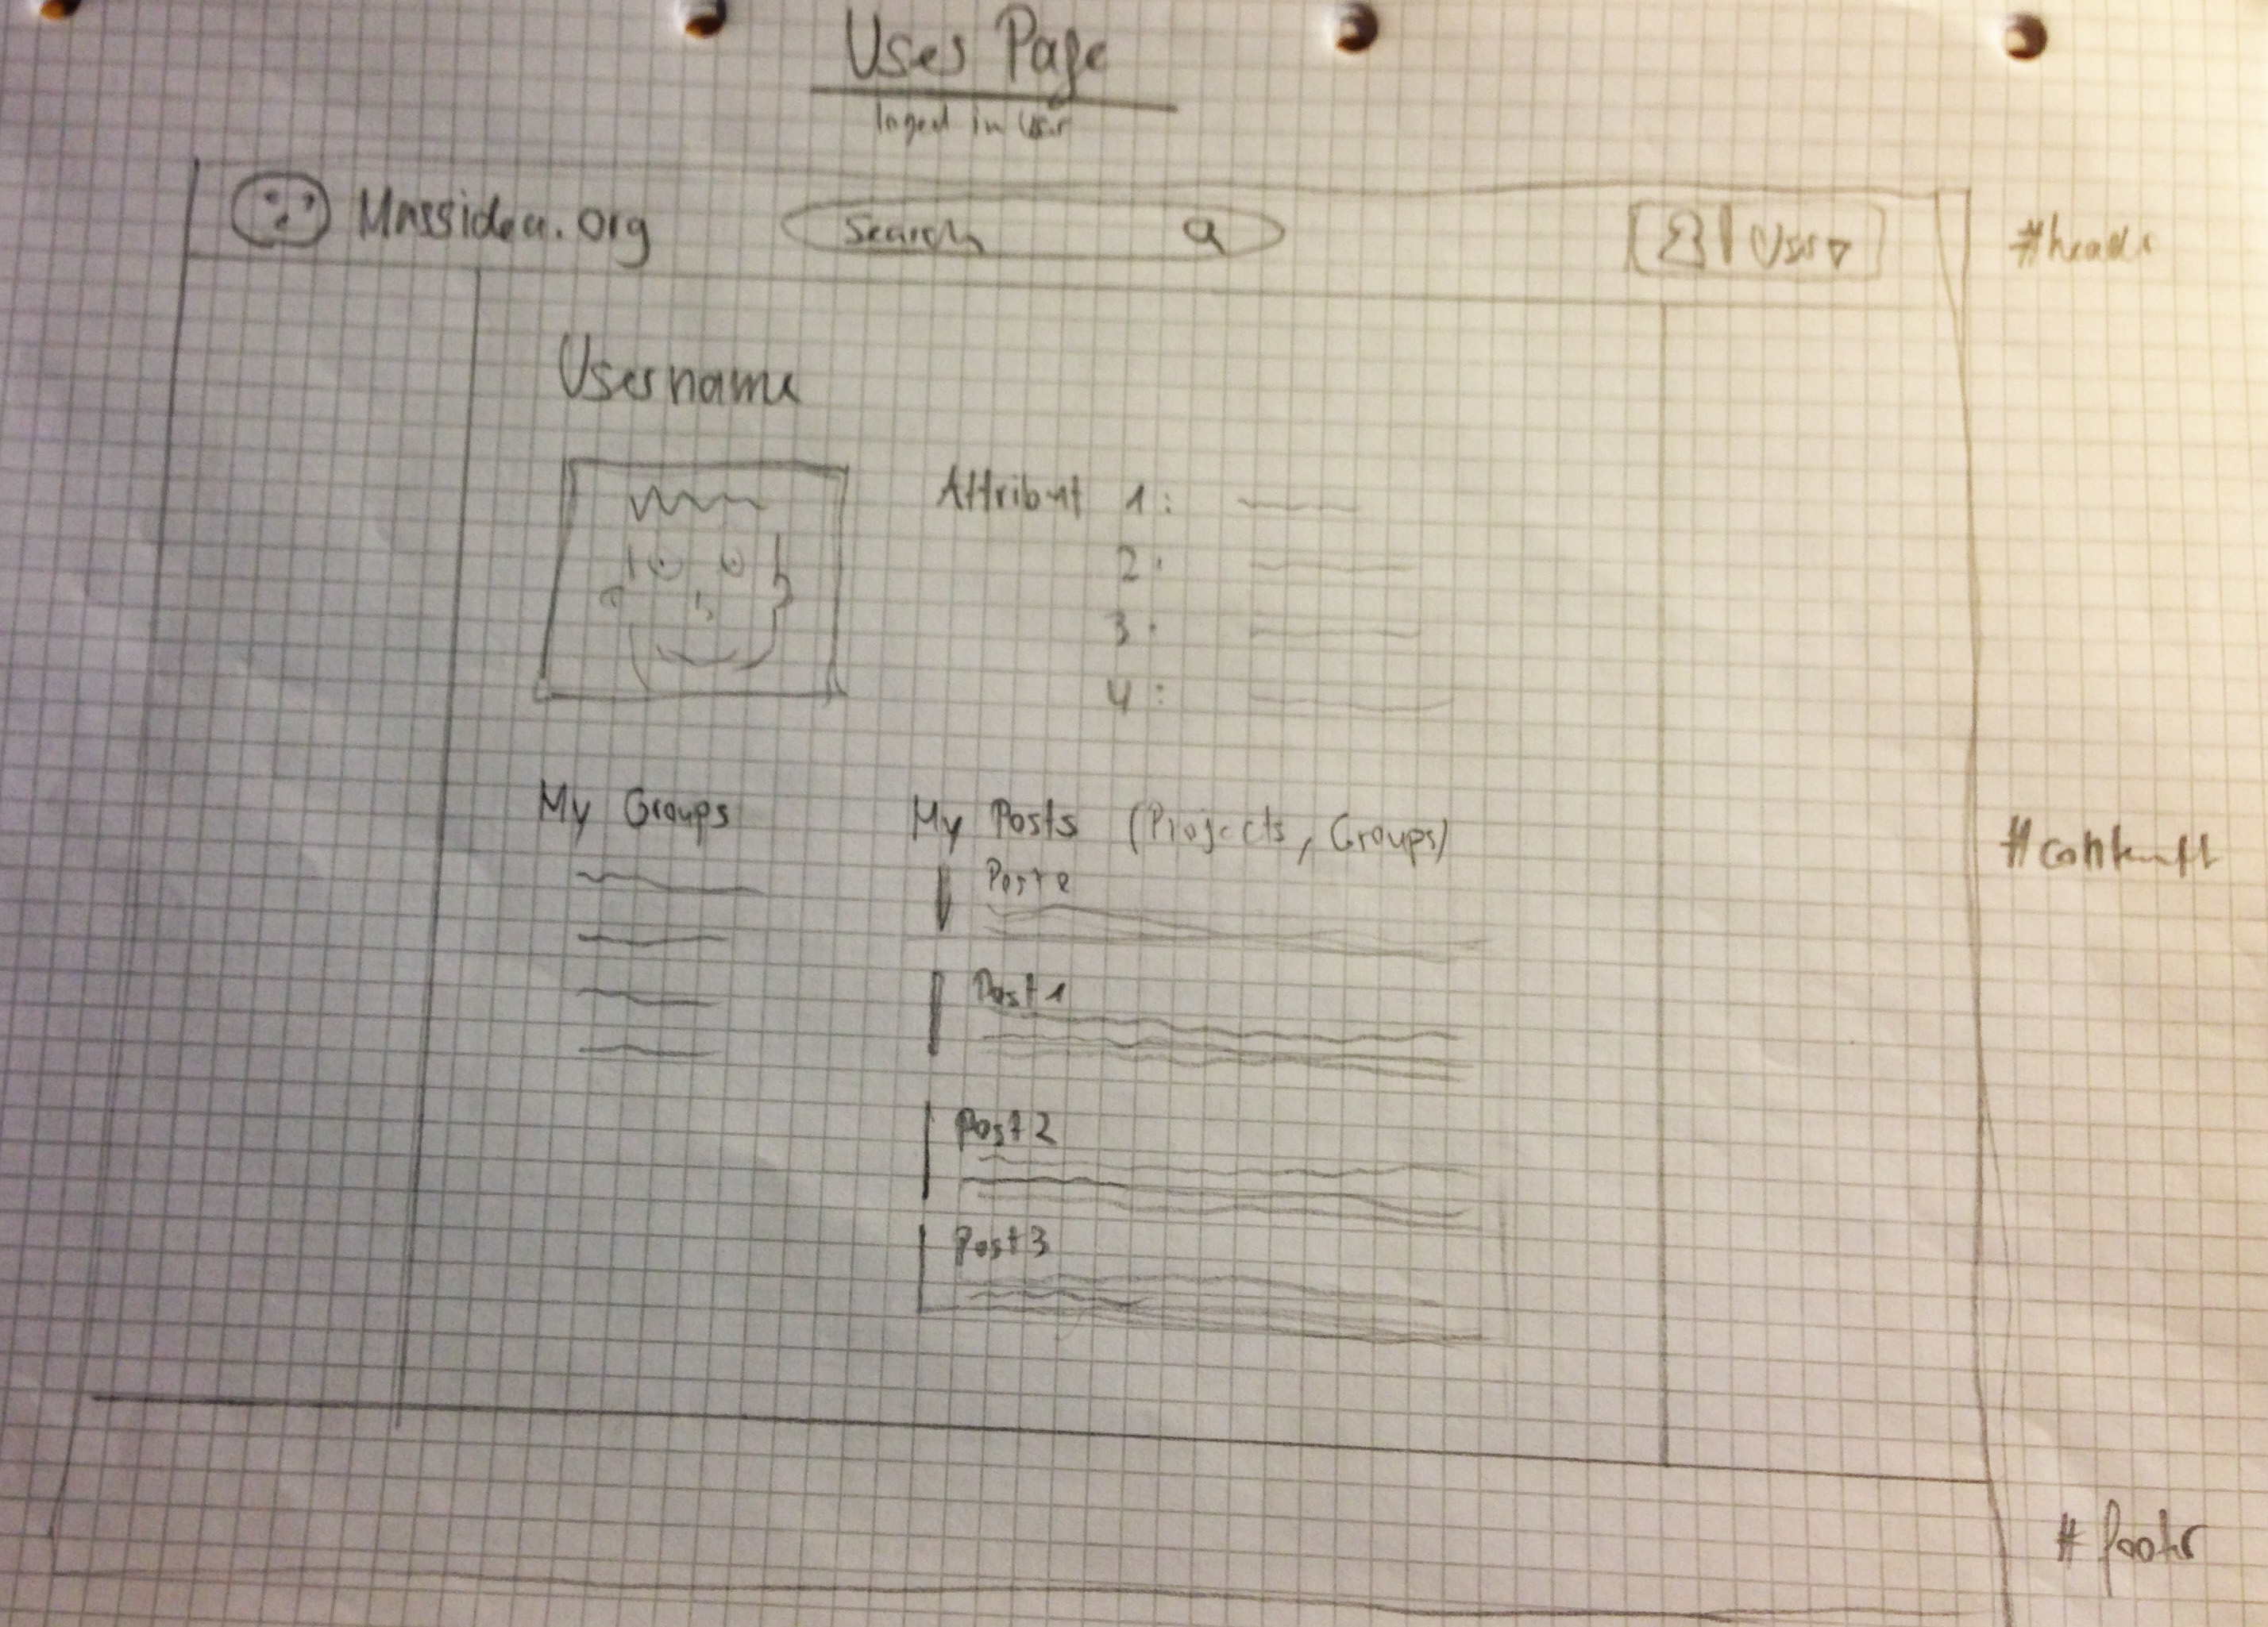 User Page
loged in User
Massidea.org
Search
User
#header
Username
Attribut 1:
2:
3:
4:
My Groups
My Posts (Projects, Groups)
Post
#content
Post 1
Post 2
Post 3
# footer